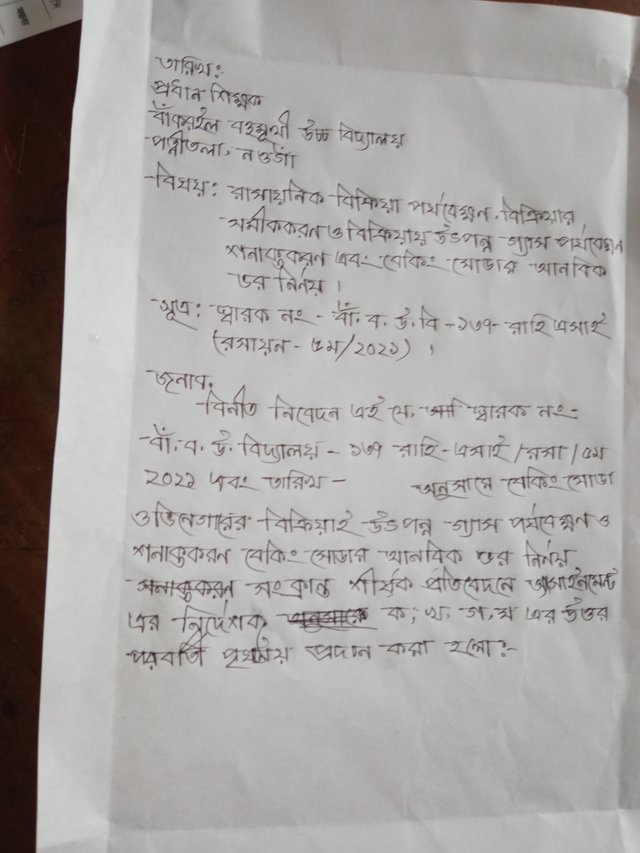 তারিখ:
প্রধান শিক্ষক
বাঁকরইল বহুমুখী উচ্চ বিদ্যালয়
পত্নীতলা, নওগাঁ
বিষয়: রাসায়নিক বিক্রিয়া পর্যবেক্ষন, বিক্রিয়ার
সমীককরন ও বিক্রিয়ায় উৎপন্ন গ্যাস পর্যবেক্ষন
শনাক্তকরন এবং বেকিং সোডার আনবিক
ভর নির্নয়।
সূত্র: স্মারক নং - বাঁ. ব. উ. বি - ১৩৭- রাহি এসাই
(রসায়ন - ৫ম/২০২১) ।
জনাব,
বিনীত নিবেদন এই যে, স্মারক নং-
বাঁ. ব. উ. বিদ্যালয় - ১৩৭ রাহি - এসাই /রসা /৫ম
২০২১ এবং তারিখ - অনুসারে বেকিং সোডা
ও ভিনেগারের বিক্রিয়াই উৎপন্ন গ্যাস পর্যবেক্ষন ও
শনাক্তকরন বেকিং সোডার আনবিক ভর নির্নয়
শনাক্তকরন সংক্রান্ত শীর্ষক প্রতিবেদনে অ্যাসাইনমেন্ট
এর নির্দেশক ক, খ, গ, ঘ এর উত্তর
পরবর্তি পৃষ্ঠায় প্রদান করা হলো:-